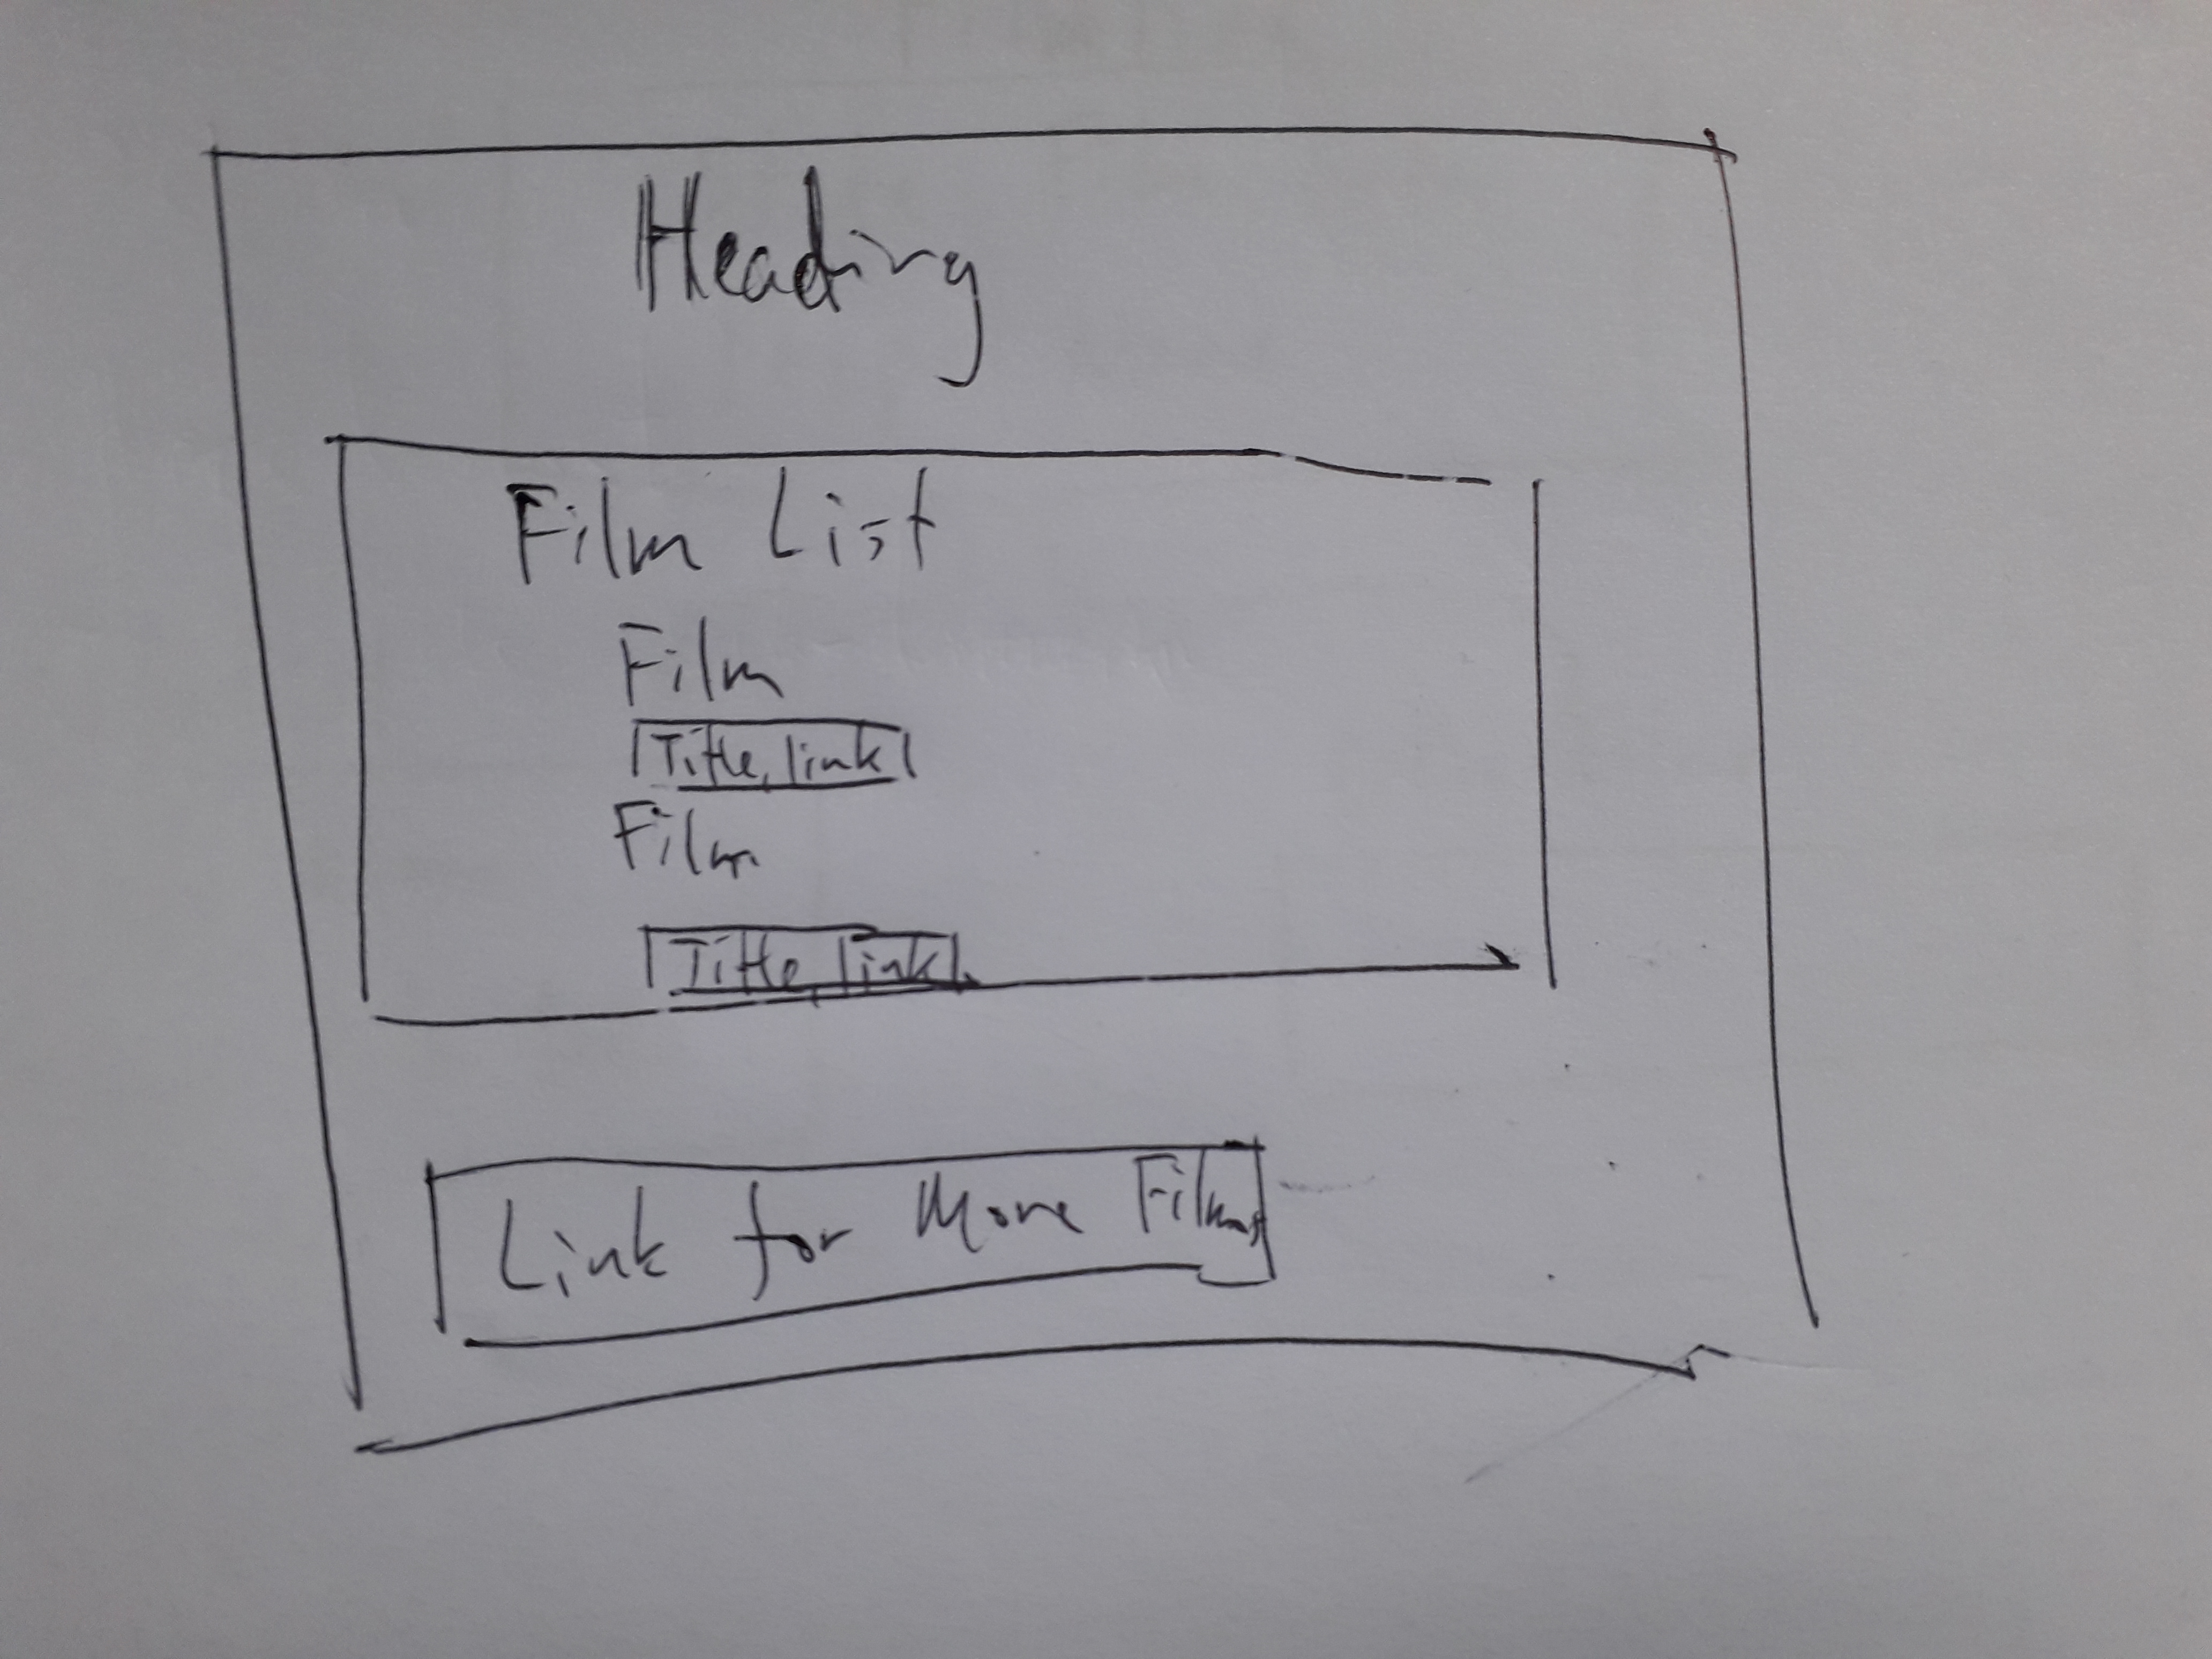 Heading
Film List
Film
Title, link
Film
Title, link
Link for More Films